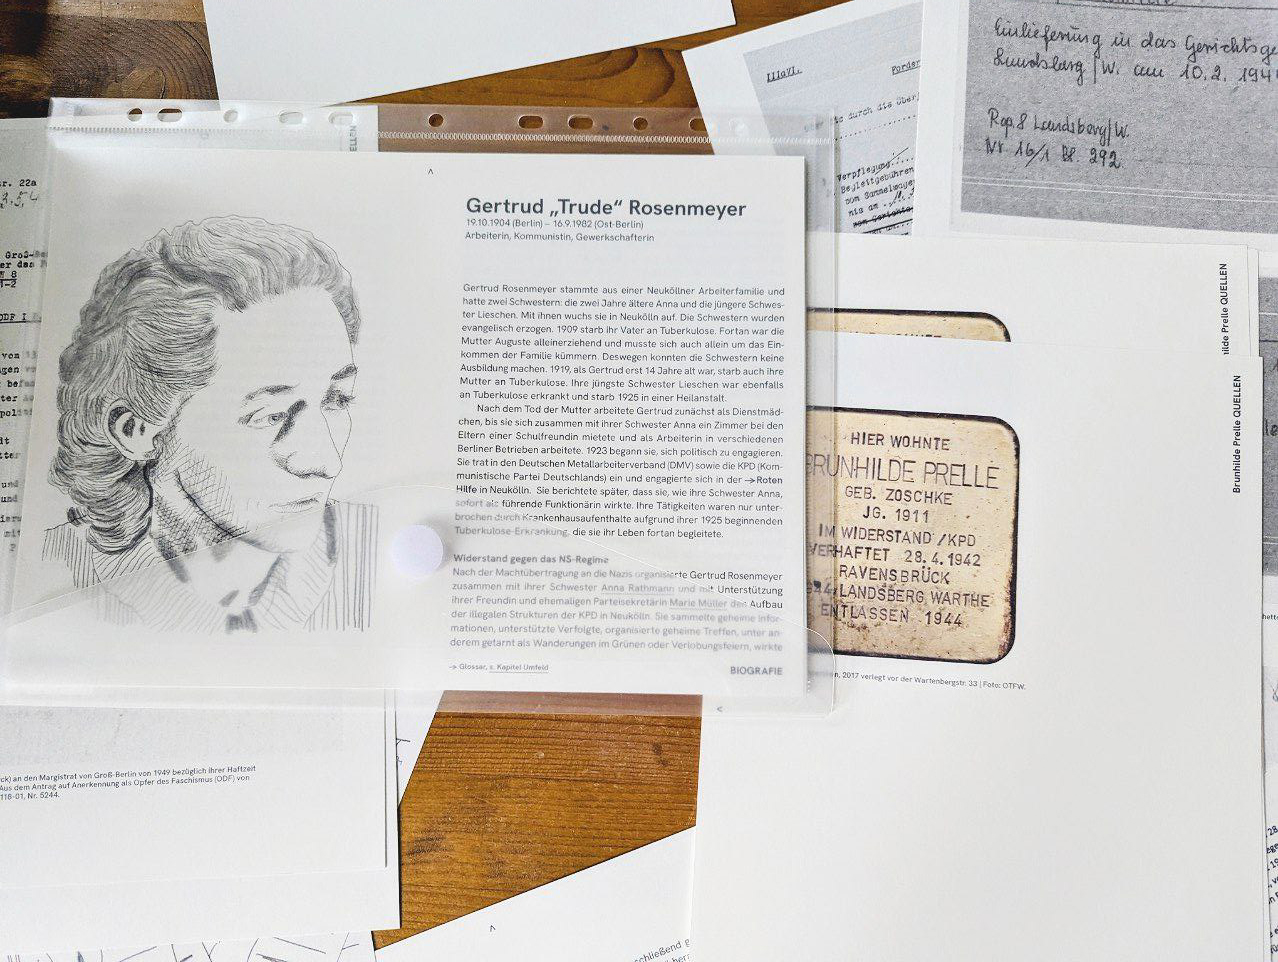 r. 22a
3.5.4
Groß-Be
er das F
M 8
1-2
ODF I
vom
QUELLEN
IIIaVI.
Forder
durch die Über
Verpflegung
Begleitgebühren
vom Sammelwagen
Einlieferung in das Gerichtsge
Landsberg/W. am 10.2.194
Rep. 8 Landsberg/W.
Nr. 16/1 Bl. 292
Gertrud „Trude“ Rosenmeyer
19.10.1904 (Berlin) – 16.9.1982 (Ost-Berlin)
Arbeiterin, Kommunistin, Gewerkschafterin
Gertrud Rosenmeyer stammte aus einer Neuköllner Arbeiterfamilie und
hatte zwei Schwestern: die zwei Jahre ältere Anna und die jüngere Schwes-
ter Lieschen. Mit ihnen wuchs sie in Neukölln auf. Die Schwestern wurden
evangelisch erzogen. 1909 starb ihr Vater an Tuberkulose. Fortan war die
Mutter Auguste alleinerziehend und musste sich auch allein um das Ein-
kommen der Familie kümmern. Deswegen konnten die Schwestern keine
Ausbildung machen. 1919, als Gertrud erst 14 Jahre alt war, starb auch ihre
Mutter an Tuberkulose. Ihre jüngste Schwester Lieschen war ebenfalls
an Tuberkulose erkrankt und starb 1925 in einer Heilanstalt.
Nach dem Tod der Mutter arbeitete Gertrud zunächst als Dienstmäd-
chen, bis sie sich zusammen mit ihrer Schwester Anna ein Zimmer bei den
Eltern einer Schulfreundin mietete und als Arbeiterin in verschiedenen
Berliner Betrieben arbeitete. 1923 begann sie, sich politisch zu engagieren.
Sie trat in den Deutschen Metallarbeiterverband (DMV) sowie die KPD (Kom-
munistische Partei Deutschlands) ein und engagierte sich in der →Roten
Hilfe in Neukölln. Sie berichtete später, dass sie, wie ihre Schwester Anna,
sofort als führende Funktionärin wirkte. Ihre Tätigkeiten waren nur unter-
brochen durch Krankenhausaufenthalte aufgrund ihrer 1925 beginnenden
Tuberkulose-Erkrankung, die sie ihr Leben fortan begleitete.
Widerstand gegen das NS-Regime
Nach der Machtübertragung an die Nazis organisierte Gertrud Rosenmeyer
zusammen mit ihrer Schwester Anna Rathmann und mit Unterstützung
ihrer Freundin und ehemaligen Parteisekretärin Marie Müller den Aufbau
der illegalen Strukturen der KPD in Neukölln. Sie sammelte geheime Infor-
mationen, unterstützte Verfolgte, organisierte geheime Treffen, unter an-
derem getarnt als Wanderungen im Grünen oder Verlobungsfeiern, wirkte
-> Glossar, s. Kapitel Umfeld
BIOGRAFIE
hilde Prelle QUELLEN
Brunhilde Prelle QUELLEN
HIER WOHNTE
BRUNHILDE PRELLE
GEB. ZOSCHKE
JG. 1911
IM WIDERSTAND / KPD
VERHAFTET 28.4.1942
RAVENSBRÜCK
LANDSBERG WARTHE
ENTLASSEN 1944
2017 verlegt vor der Wartenbergstr. 33 | Foto: OTFW.
ck) an den Margistrat von Groß-Berlin von 1949 bezüglich ihrer Haftzeit
Aus dem Antrag auf Anerkennung als Opfer des Faschismus (ODF) von
118-01, Nr. 5244.
schließend g